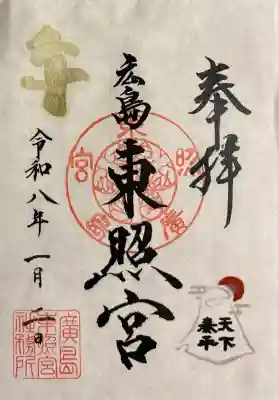 奉拝
広島東照宮
令和八年一月二日
天下
泰平
廣島
東照宮
社務所